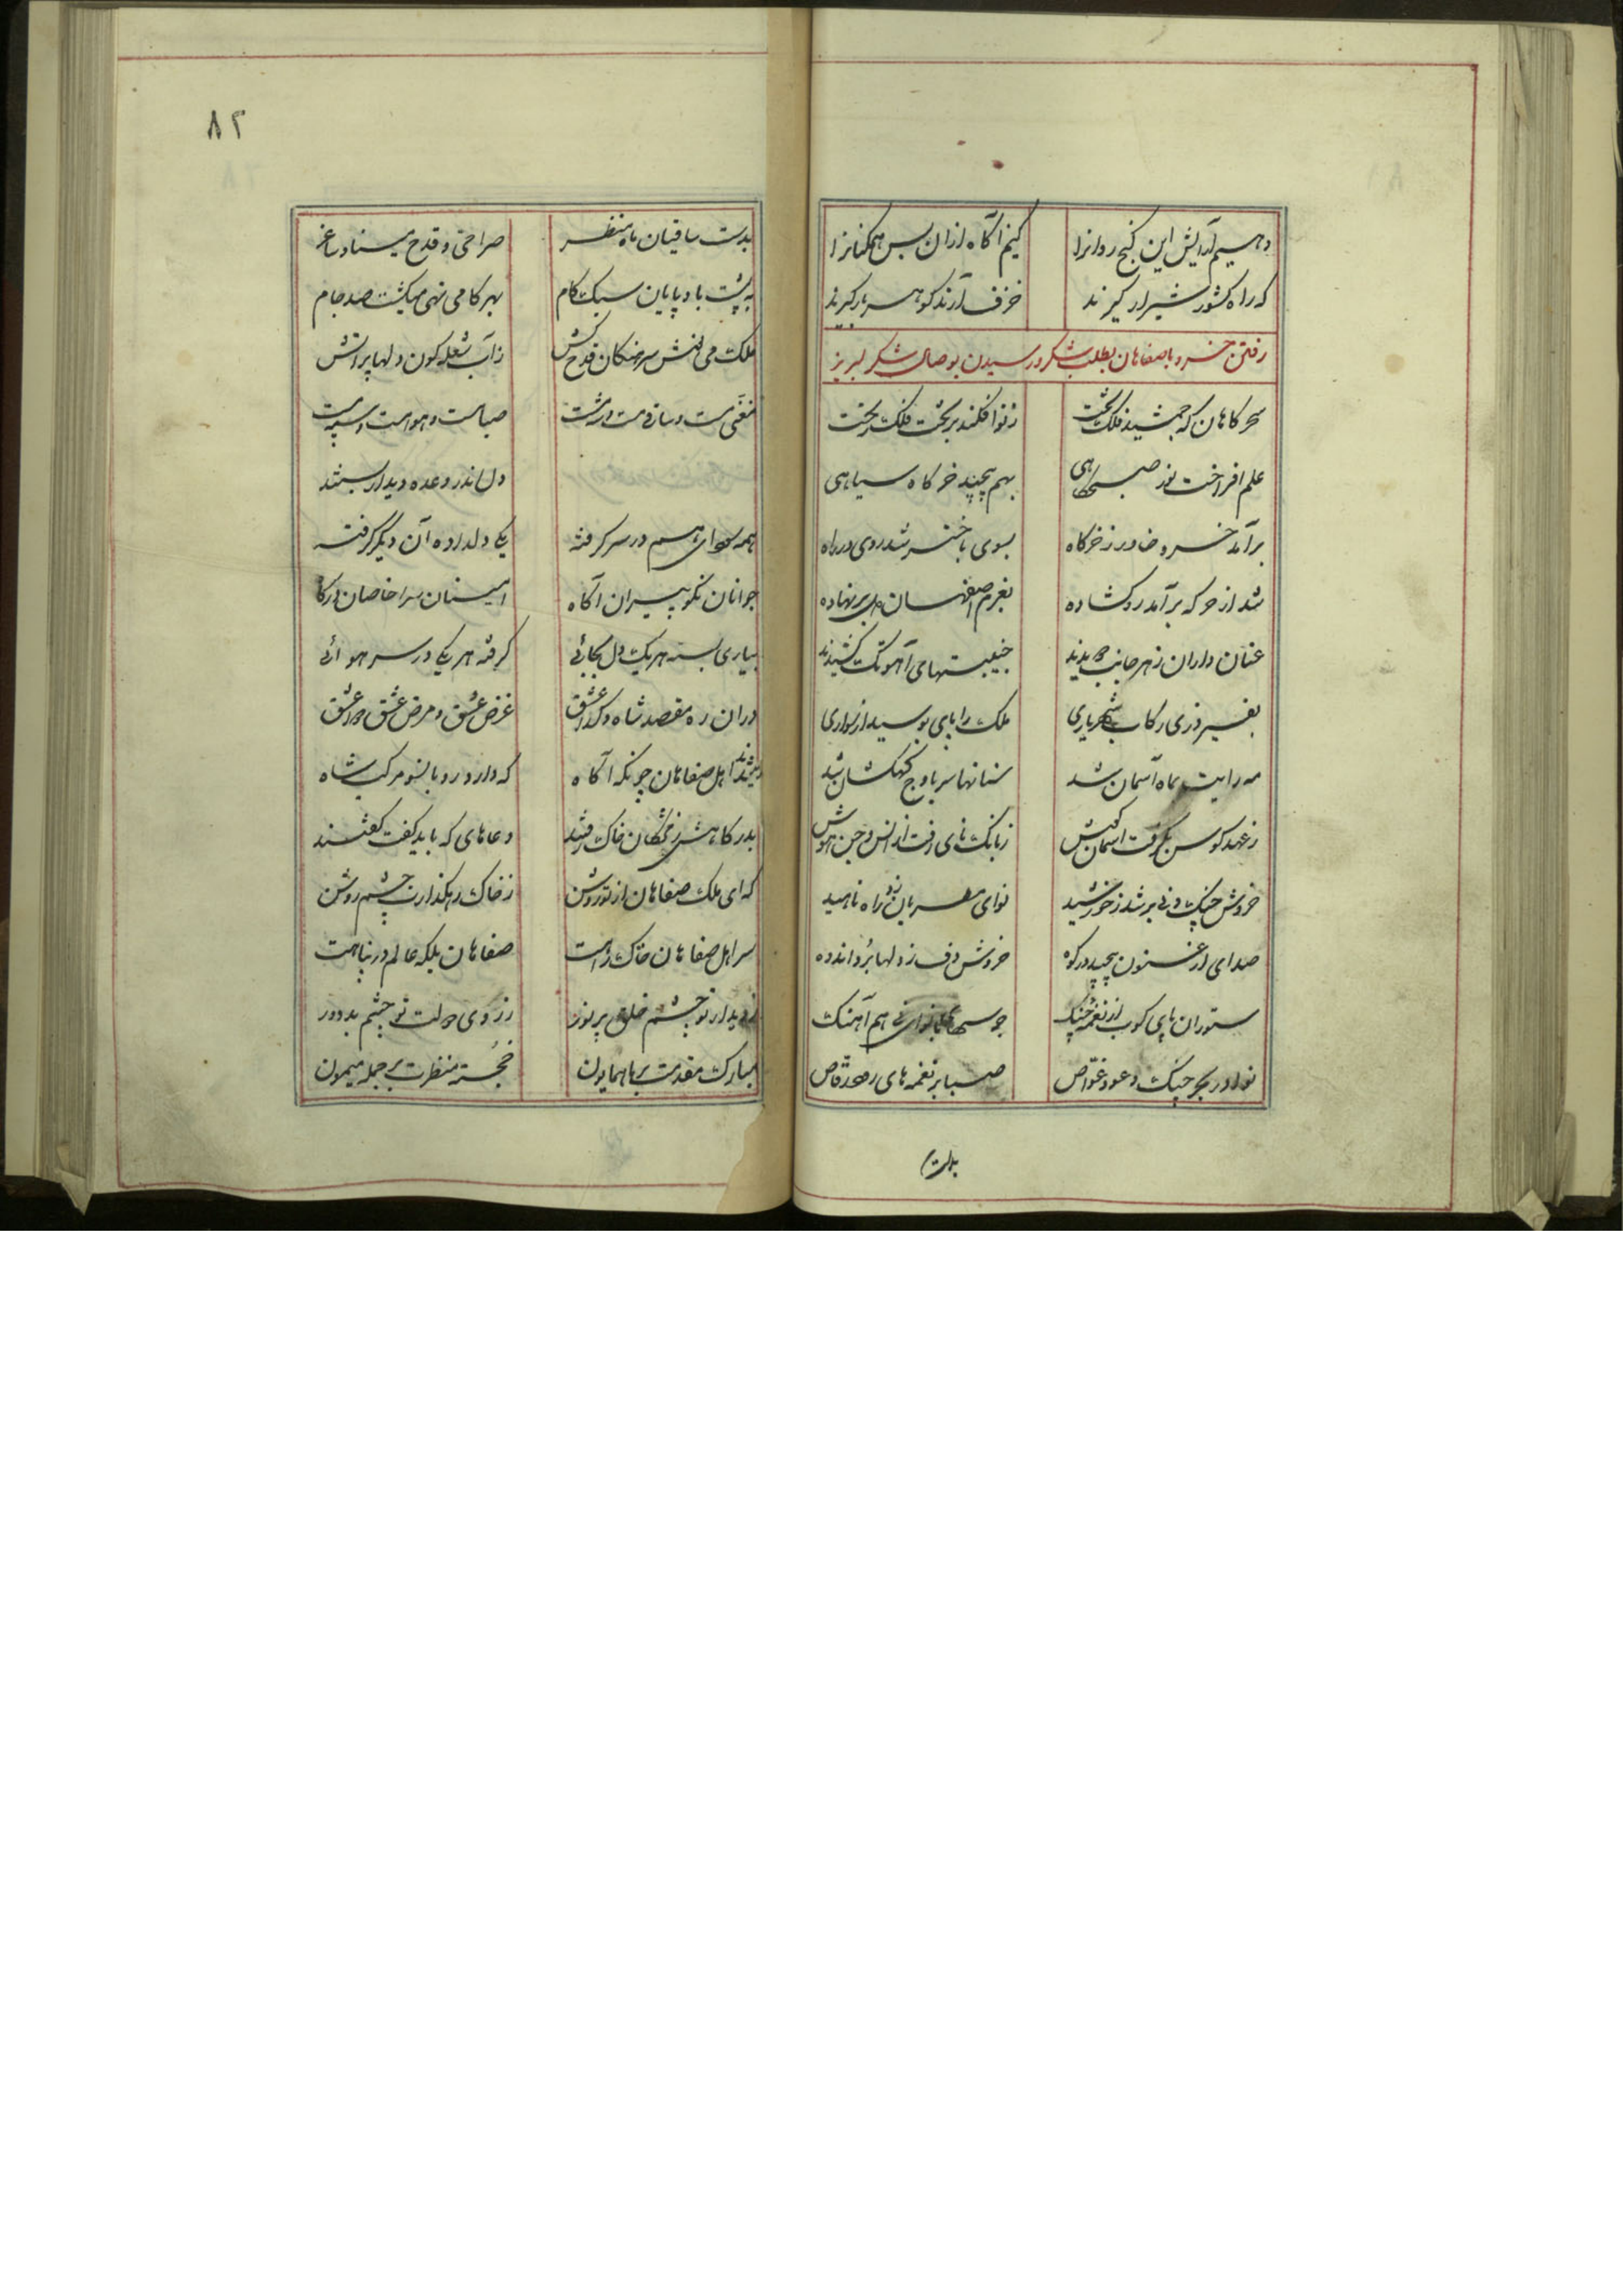 دهیم آرایش این گنج روانرا کنیم آگاه ازان پس همکنانرا
که راه کشور شیراز گیرند خزف آرند گوهر بار گیرند
رفتن خسرو باصفاهان بطلب شکر و رسیدن بوصال شکر لبریز
سحرکاهان که جمشید فلک تخت ز نو افکند بر تخت فلک رخت
علم افراخت نور صبحگاهی بهم پیچید خرگاه سیاهی
برآمد خسرو خاور ز خرگاه بسوی باختر شد روی در راه
شد از خرگه برآمد رو گشاده بعزم اصفهان دل بر نهاده
عنان داران ز هر جانب دویدند جنیبتهای آهو تک کشیدند
بفیروزی رکاب شهریاری ملک را پای بوسید از سواری
مه رایت بماه آسمان شد سنانها سر باوج کهکشان شد
ز عهد کوس بگرفت آسمان گوش ز بانگ نای رفت از انس و جن هوش
خروش چنگ و نی بر شد ز خورشید نوای مطربان زد راه ناهید
صدای ارغنون پیچید در کوه خروش دف ز دلها برد اندوه
ستوران پای کوب از نغمه چنگ جرسهای با نوای نی هم آهنگ
نوا در بحر چنگ و عود غواص صبا بر نغمه های رود رقاص
بدست
۸۲
بدست ساقیان ماه منظر صراحی و قدح مینا و ساغر
به پشت باد پایان سبک کام بهر کامی تهی میگشت صد جام
ملک می نوش سرهنگان قدح کش ز آب شعله گون دلها پر آتش
مغنی مست و ساقی مست و می مست صبا مست و هوا مست و سپهر مست
دل اندر وعده دیدار بستند
همه سودای هم در سر گرفته یکی دلداده آن دیگر گرفته
جوانان نکو پیران آگاه امینان سرا خاصان درگاه
بیاری بسته هر یک دل بجائی گرفته هر یکی در سر هوائی
دران ره مقصد شاه و گدا عشق غرض عشق و مرض عشق و دوا عشق
شدند اهل صفاهان چونکه آگاه که دارد رو بانسو مرکب شاه
بدرگاهش ز مژگان خاک رفتند دعاهای که باید گفت گفتند
که ای ملک صفاهان از تو روشن ز خاک رهگذارت چشم روشن
سر اهل صفاهان خاک راهت صفاهان بلکه عالم در پناهت
ز دیدار تو چشم خلق پر نور ز روی دولت تو چشم بد دور
مبارک مقدمت بر ما همایون خجسته منظرت بر جمله میمون